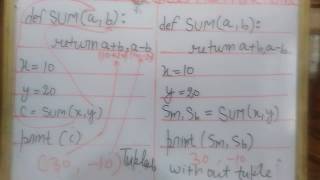 def SUM(a,b):
return a+b,a-b
x=10
y=20
C = SUM(x,y)
print (C)
(30, -10) Tuple
def SUM(a,b):
return a+b,a-b
x=10
y=20
Sm, Sb = SUM(x,y)
print (Sm, Sb)
30, -10
without tuple